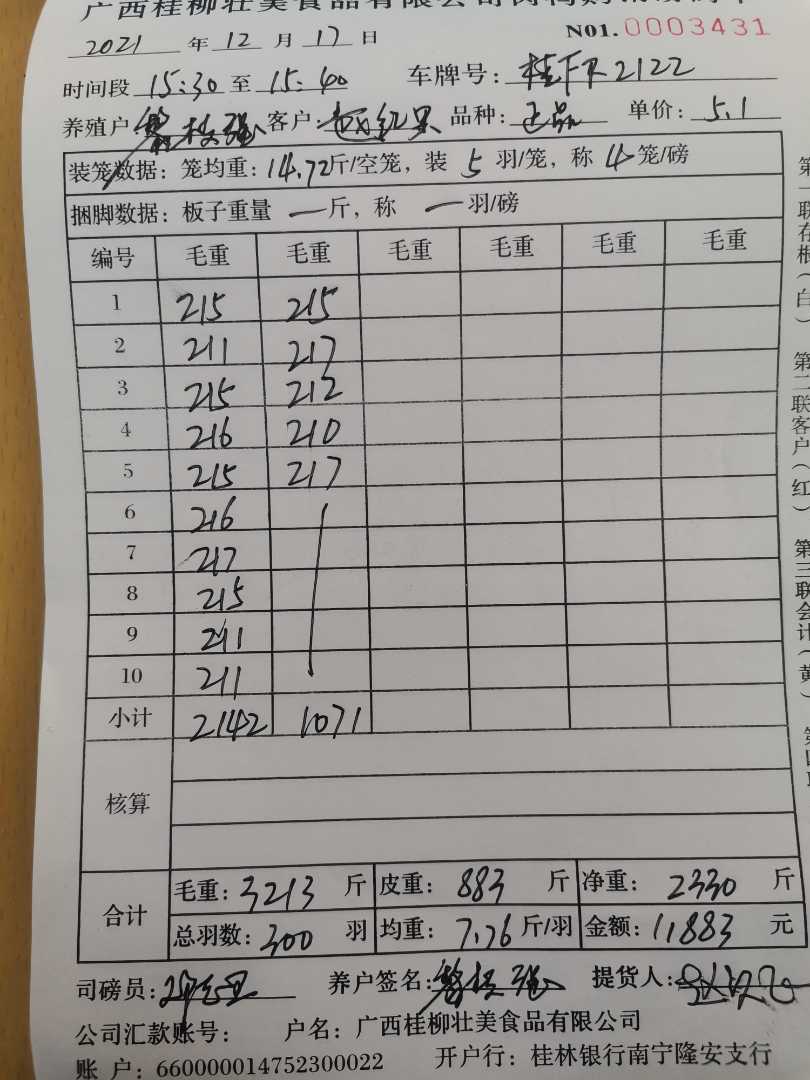 广西桂柳壮美食品有限公司
2021 年 12 月 17 日 N01.0003431
时间段 15:30 至 15:40 车牌号: 2122
养殖户 客户: 赵红果 品种: 正品 单价: 5.1
装笼数据: 笼均重: 14.72 斤/空笼, 装 5 羽/笼, 称 4 笼/磅
捆脚数据: 板子重量 一 斤, 称 一 羽/磅
编号 毛重 毛重 毛重 毛重 毛重 毛重
1 215 215
2 211 217
3 215 212
4 216 210
5 215 217
6 216
7 217
8 215
9 211
10 211
小计 2142 1071
核算
合计 毛重: 3213 斤 皮重: 883 斤 净重: 2330 斤
总羽数: 300 羽 均重: 7.76 斤/羽 金额: 11883 元
司磅员: 养户签名: 提货人:
公司汇款账号: 户名: 广西桂柳壮美食品有限公司
账 户: 660000014752300022 开户行: 桂林银行南宁隆安支行
第一联存根(白) 第二联客户(红) 第三联会计(黄)